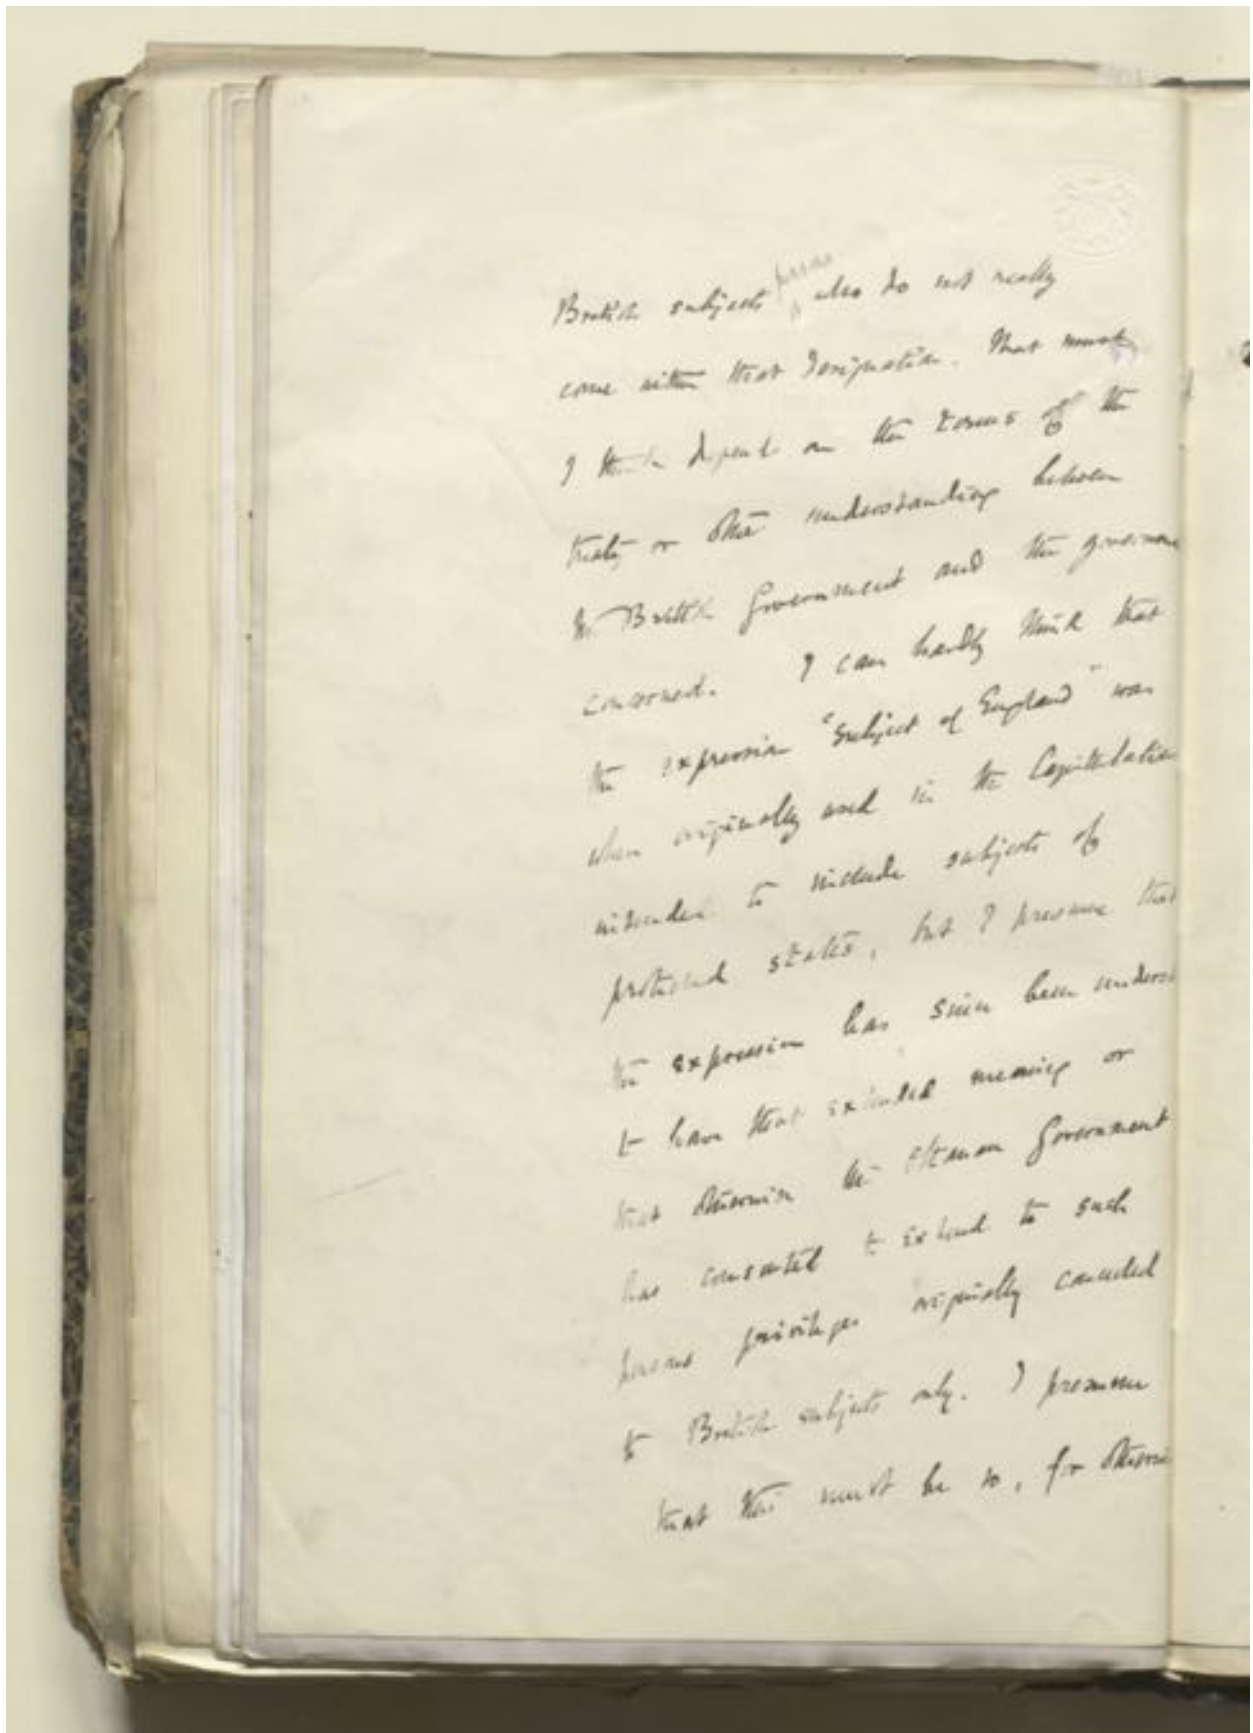 British subjects persons who do not really
come within that designation. That must
I think depend on the terms of the
treaty or other understanding between
the British Government and the governm
concerned. I can hardly think that
the expression "Subject of England" was
when originally used in the Capitulation
intended to include subjects of
protected states, but I presume that
the expression has since been unders
to have that extended meaning or
that otherwise the Ottoman Government
has consented to extend to such
persons privileges originally conceded
to British subjects only. I presume
that this must be so, for otherwi